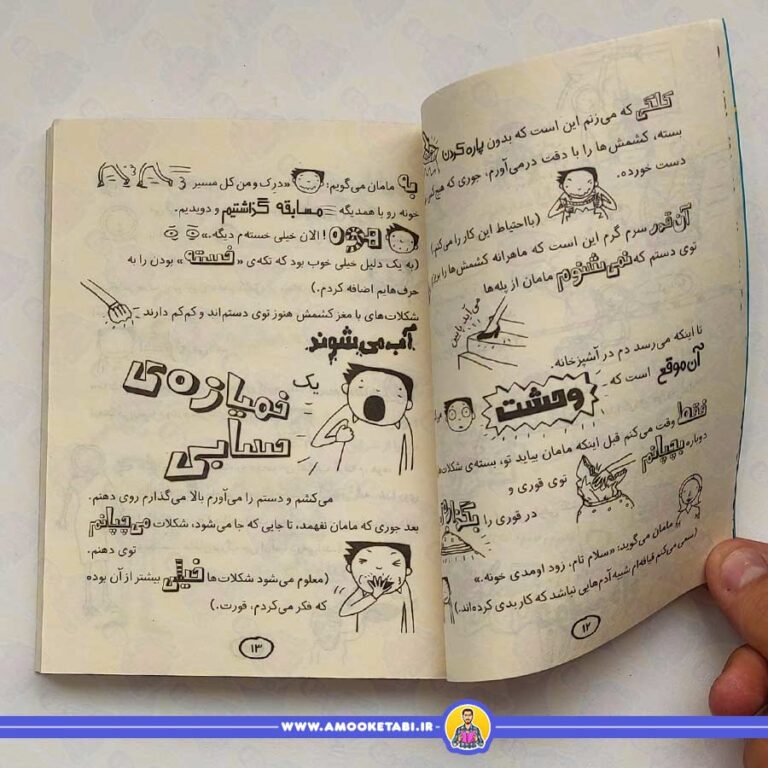 کلکی که می‌زنم این است که بدون پاره کردن
بسته، کشمش‌ها را با دقت درمی‌آورم، جوری که
دست خورده.
(بااحتیاط این کار را می‌کنم)
آن‌قدر سرم گرم این است که ماهرانه کشمش‌ها را
توی دستم که نمی‌شنوم مامان از پله‌ها
می‌آید پایین
تا اینکه می‌رسد دم در آشپزخانه.
آن‌موقع است که
وحشت
فقط وقت می‌کنم قبل اینکه مامان بیاید تو، بسته‌ی شکلات
دوباره بچپانم توی قوری و
در قوری را
مامان می‌گوید: «سلام تام، زود اومدی خونه.»
(سعی می‌کنم قیافه‌ام شبیه آدم‌هایی نباشد که کار بدی کرده‌اند.)
۱۲
به مامان می‌گویم: «درِک و من کل مسیر
خونه رو با همدیگه مسابقه گزاشتیم و دویدیم.
الان خیلی خسته‌م دیگه.»
(به یک دلیل خیلی خوب بود که تکه‌ی «خسته» بودن را به
حرف‌هایم اضافه کردم.)
شکلات‌های با مغز کشمش هنوز توی دستم‌اند و کم‌کم دارند
آب می‌شوند.
یک
خمیازه‌ی
حسابی
می‌کشم و دستم را می‌آورم بالا می‌گذارم روی دهنم.
بعد جوری که مامان نفهمد، تا جایی که جا می‌شود، شکلات می‌چپانم
توی دهنم.
(معلوم می‌شود شکلات‌ها خیلی بیشتر از آن بوده
که فکر می‌کردم، قورت.)
۱۳
WWW.AMOOKETABI.IR